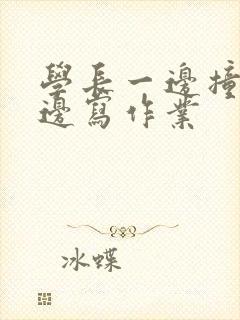 學長一邊撞
邊寫作業
冰蝶